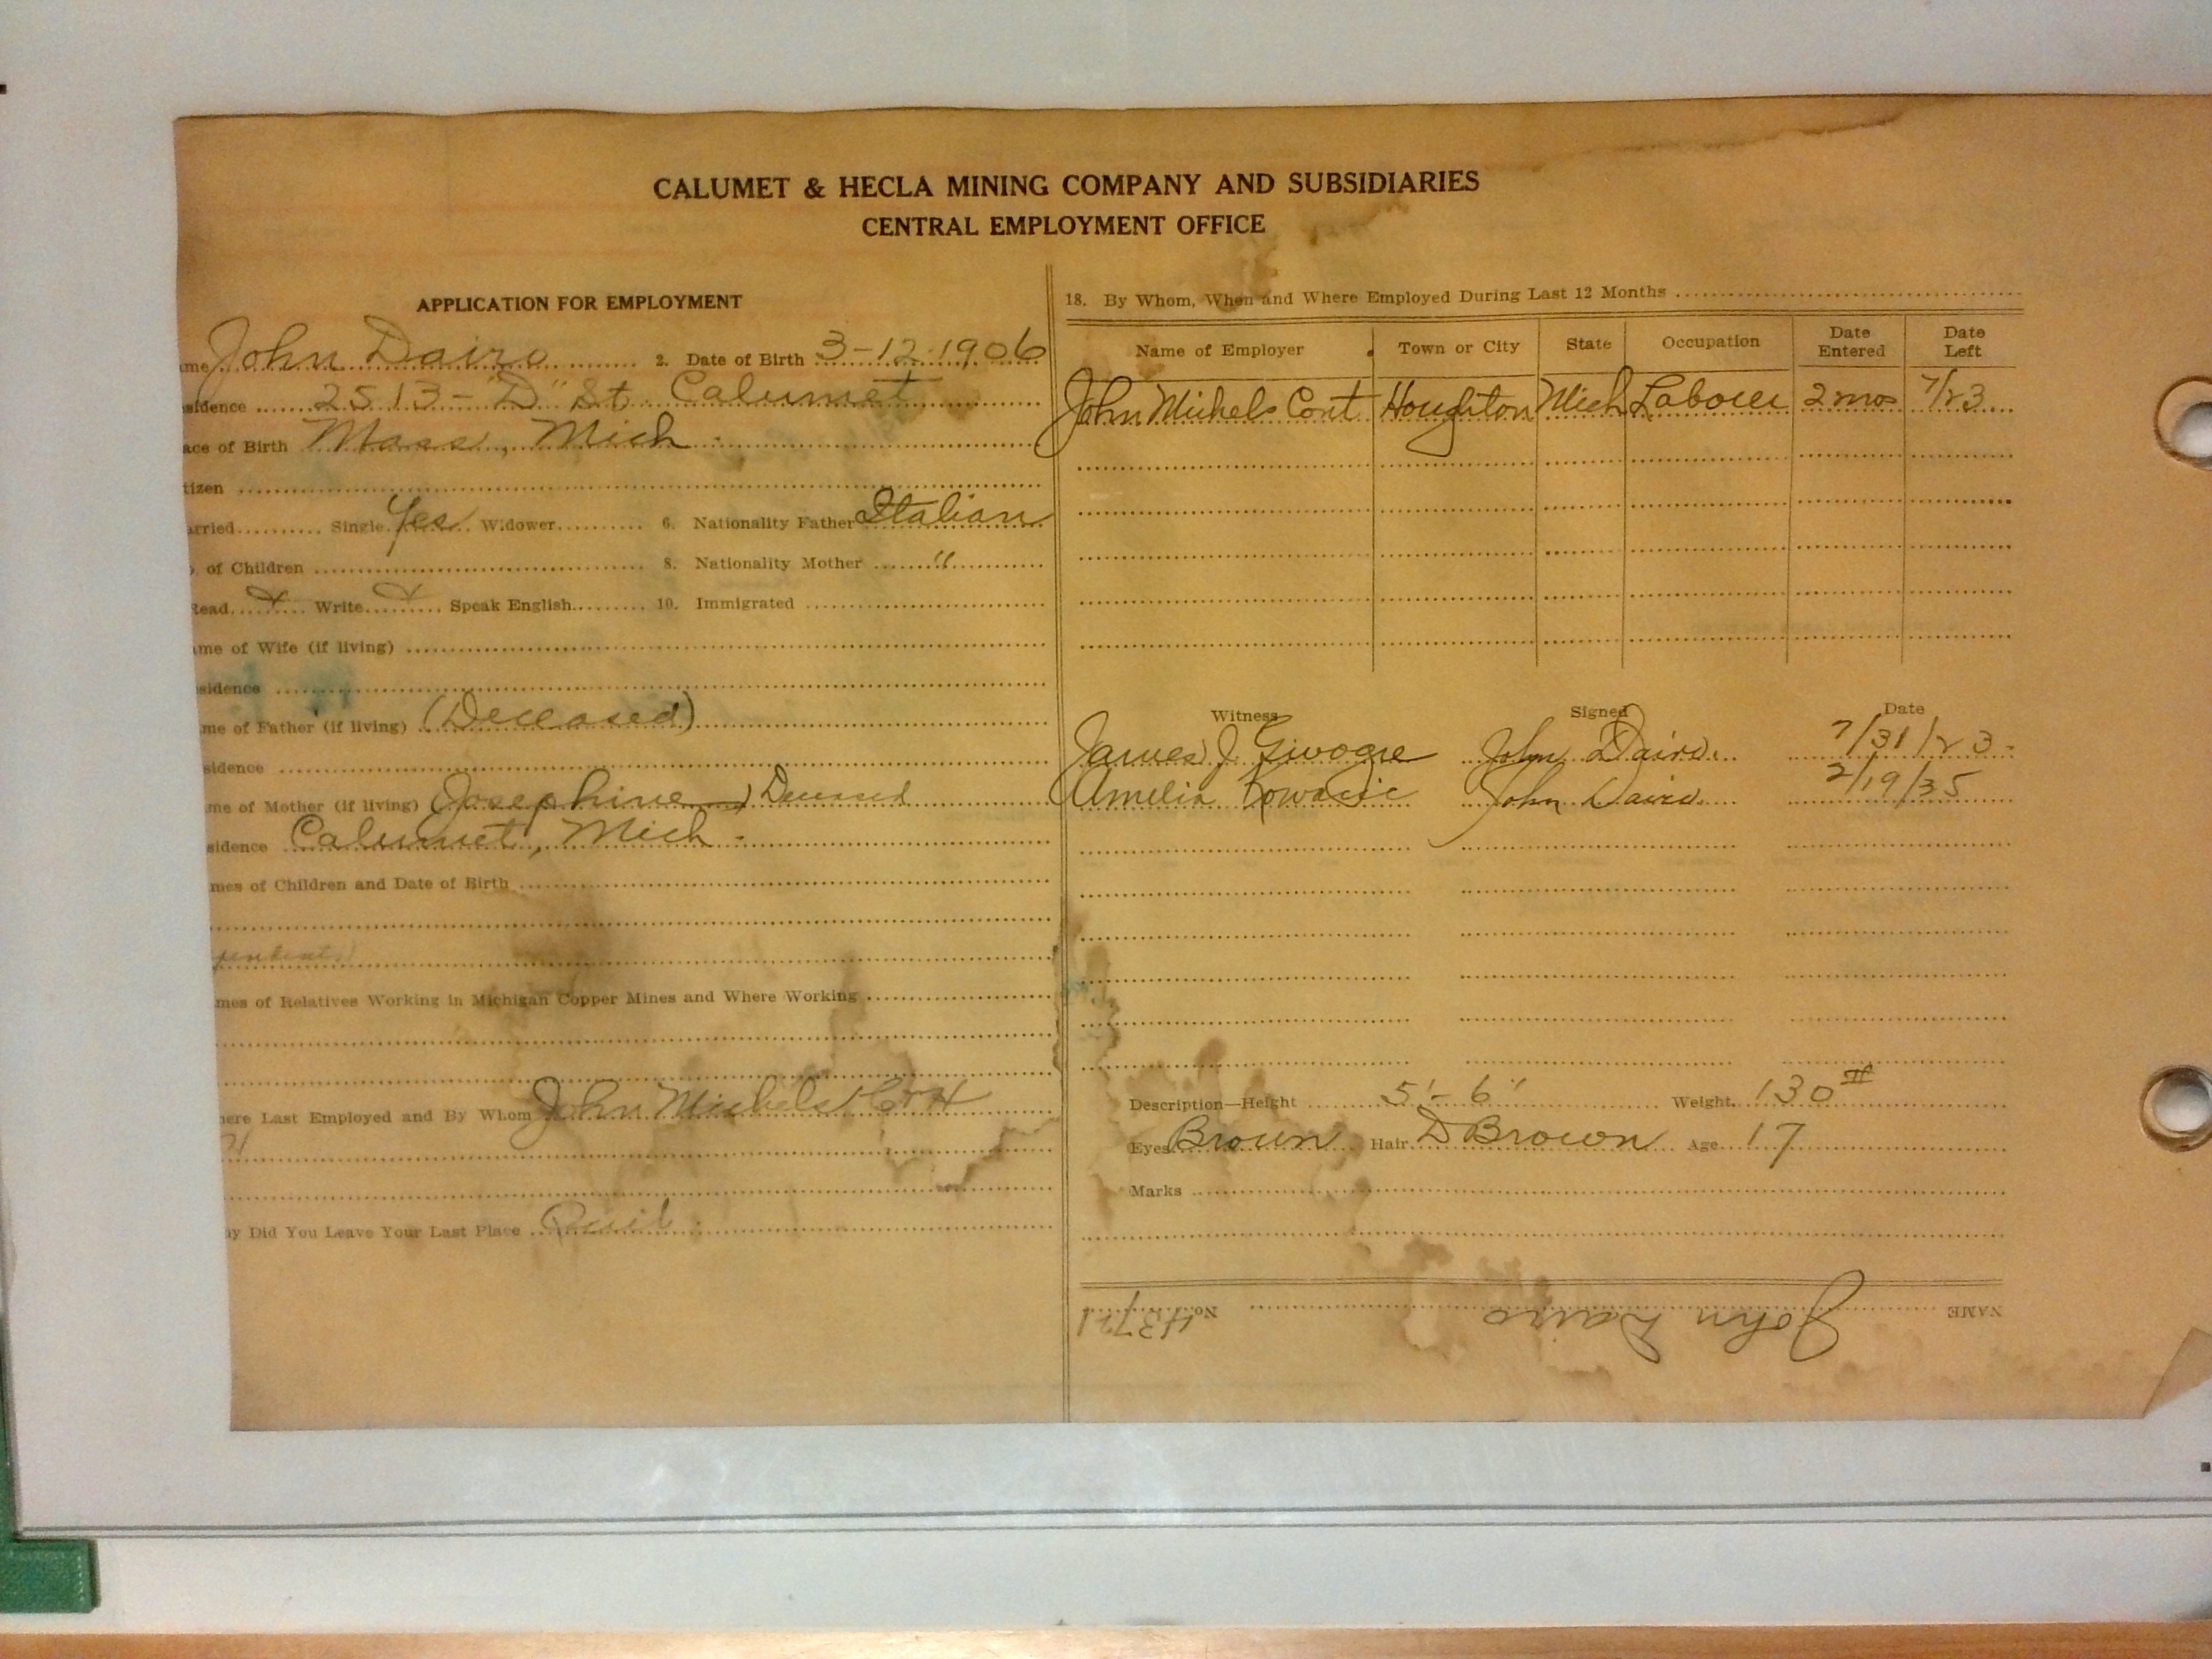 CALUMET & HECLA MINING COMPANY AND SUBSIDIARIES
CENTRAL EMPLOYMENT OFFICE
APPLICATION FOR EMPLOYMENT
me John Dairo 2. Date of Birth 3-12-1906
sidence 2513-"D" St. Calumet
ace of Birth Mass, Mich.
tizen
arried Single Yes Widower 6. Nationality Father Italian
of Children 8. Nationality Mother "
Read x Write x Speak English 10. Immigrated
me of Wife (if living)
sidence
me of Father (if living) (Deceased)
sidence
me of Mother (if living) (Josephine) Deceased
sidence Calumet, Mich.
mes of Children and Date of Birth
pendents
mes of Relatives Working in Michigan Copper Mines and Where Working
here Last Employed and By Whom John Michels Cont
y Did You Leave Your Last Place
18. By Whom, When and Where Employed During Last 12 Months
Name of Employer Town or City State Occupation Date Entered Date Left
John Michels Cont Houghton Mich Laborer 2 mos 7/23
Witness Signed Date
James J. John Dairo. 7/31/23.
Amelia John Dairo 2/19/35
Description—Height 5'-6" Weight 130#
Eyes Brown Hair D Brown Age 17
Marks
NAME John Dairo No. 43721